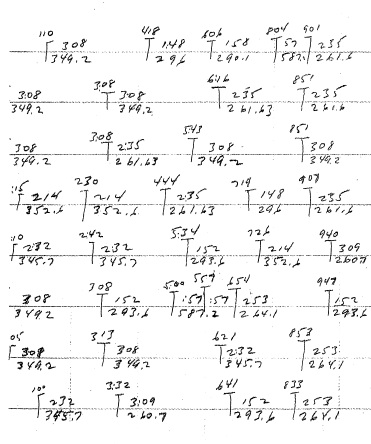 110 418 606 804 901
308 148 158 57 235
349.2 296 290.1 587. 261.6
308 646 851
308 308 235 235
349.2 349.2 261.63 261.6
308 543 851
308 235 308 308
349.2 261.63 349.2 349.2
:15 230 444 719 907
214 214 235 148 235
352.6 352.6 261.63 296 261.6
:10 242 534 726 940
232 232 152 214 309
345.7 345.7 293.6 352.6 260.7
308 500 557 654 947
308 152 :57 :57 253 152
349.2 293.6 587.2 264.1 293.6
05 313 621 853
308 308 232 253
349.2 349.2 345.7 264.1
10 332 641 833
232 309 152 253
345.7 260.7 293.6 264.1